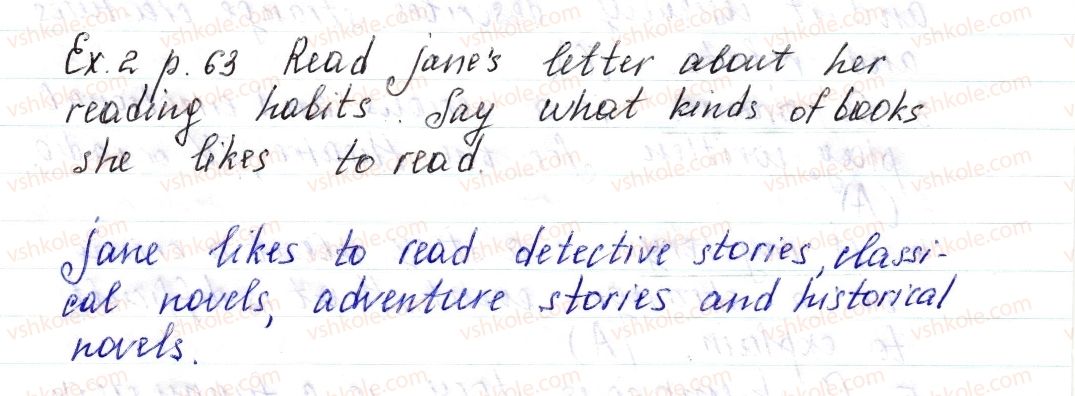 Ex. 2 p. 63 Read Jane's letter about her
reading habits. Say what kinds of books
she likes to read.
Jane likes to read detective stories, classi-
cal novels, adventure stories and historical
novels.